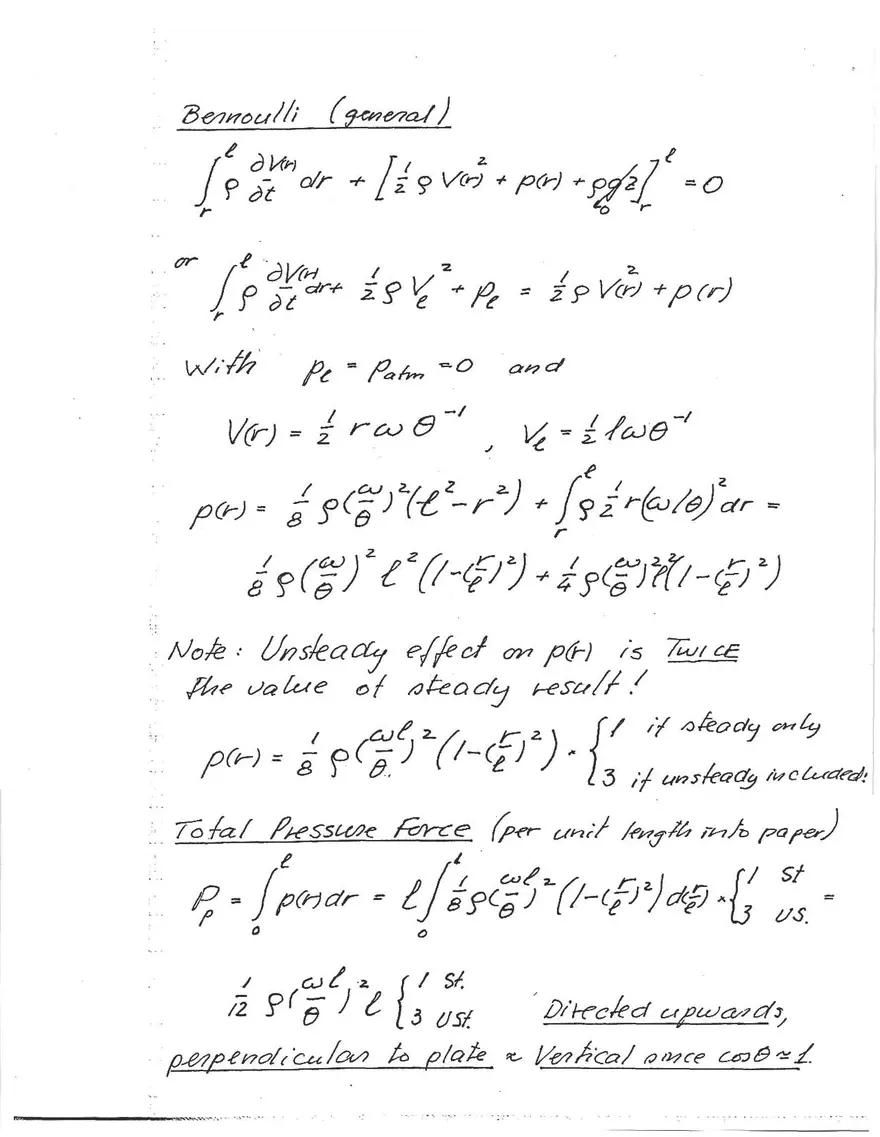 Bernoulli (general)
∫_r^ℓ ρ ∂V(r)/∂t dr + [½ ρ V(r)² + p(r) + ρgz]_r^ℓ = 0
→0
or ∫_r^ℓ ρ ∂V(r)/∂t dr + ½ ρ V_ℓ² + p_ℓ = ½ ρ V(r)² + p(r)
With p_ℓ = p_atm = 0 and
V(r) = ½ r ω θ⁻¹ , V_ℓ = ½ ℓ ω θ⁻¹
p(r) = ⅛ ρ (ω/θ)² (ℓ² - r²) + ∫_r^ℓ ρ ½ r (ω/θ)² dr =
⅛ ρ (ω/θ)² ℓ² (1-(r/ℓ)²) + ¼ ρ (ω/θ)² ℓ² (1-(r/ℓ)²)
Note: Unsteady effect on p(r) is TWICE
the value of steady result!
p(r) = ⅛ ρ (ωℓ/θ)² (1-(r/ℓ)²) · { 1 if steady only
3 if unsteady included!
Total Pressure Force (per unit length into paper)
P_p = ∫_0^ℓ p(r) dr = ℓ ∫_0^1 ⅛ ρ (ωℓ/θ)² (1-(r/ℓ)²) d(r/ℓ) × { 1 st =
3 us.
1/12 ρ (ωℓ/θ)² ℓ { 1 st.
3 ust. Directed upwards,
perpendicular to plate ≈ Vertical since cosθ ≃ 1.